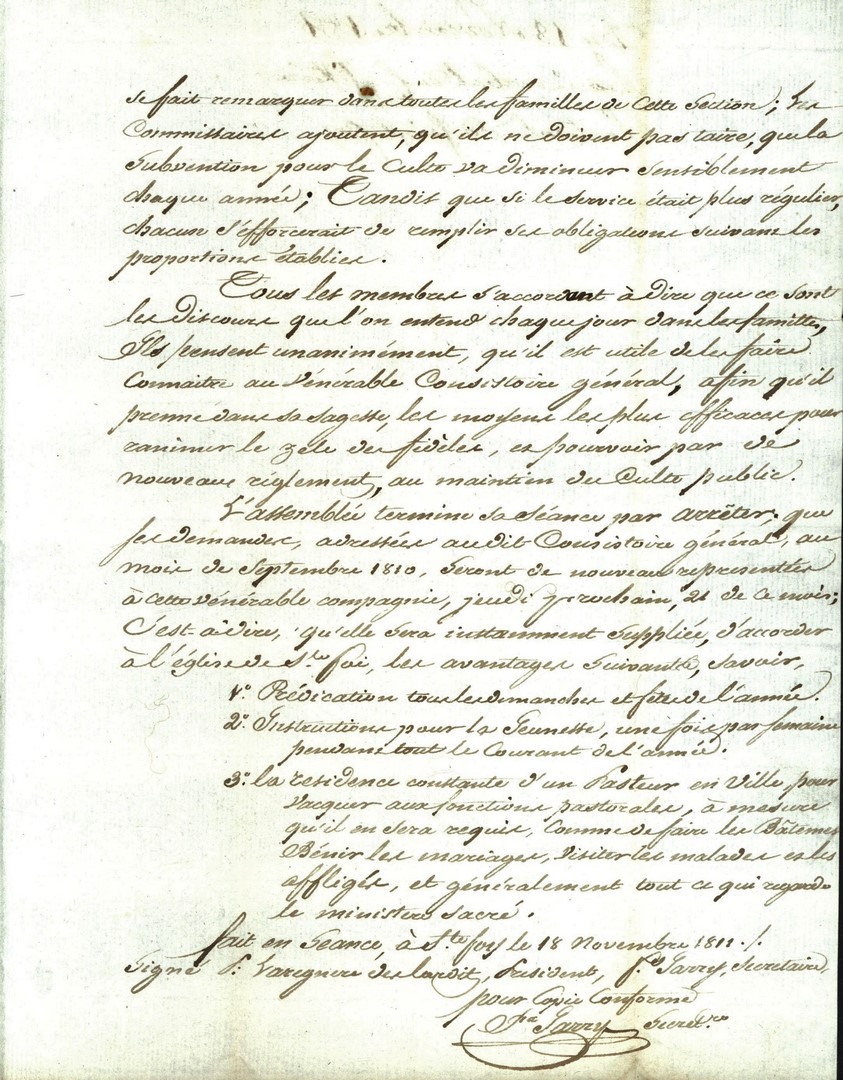 se fait remarquer dans toutes les familles de cette Section; les
Commissaires ajoutent, qu'ils ne doivent pas taire, que la
Subvention pour le Culte va diminuer sensiblement
chaque année; Tandis que si le service était plus régulier,
chacun s'efforcerait de remplir ses obligations suivant les
proportions établies.
Tous les membres s'accordent à dire que ce sont
les discours que l'on entend chaque jour dans les familles,
Ils pensent unanimément, qu'il est utile de les faire
Connaitre au Vénérable Consistoire général, afin qu'il
prenne dans sa sagesse, les moyens les plus efficaces pour
ranimer le zèle des fidèles, et pourvoir par de
nouveaux règlement, au maintien du Culte public.
L'assemblée termine sa Séance par arrêter, que
ses demandes, adressées audit Consistoire général, au
mois de Septembre 1810, Seront de nouveau représentées
à cette vénérable compagnie, jeudi prochain, 21 de ce mois;
C'est à dire, qu'elle sera instamment suppliée, d'accorder
à l'église de Ste foi, les avantages Suivants, savoir,
1°. Prédication tous les dimanches et fêtes de l'année.
2°. Instructions pour la Jeunesse, une fois par semaine
pendant tout le Courant de l'année.
3°. la residence constante d'un Pasteur en Ville, pour
vacquer aux fonctions pastorales, à mesure
qu'il en sera requis, Comme de faire les Bâtêmes
Bénir les mariages, Visiter les malades et les
affligés, et généralement tout ce qui regarde
le ministère Sacré.
fait en Séance, à Ste foy le 18 Novembre 1811 ./.
Signé P. Président, Jarry, Secretaire,
pour Copie Conforme
Jarry Secret.re